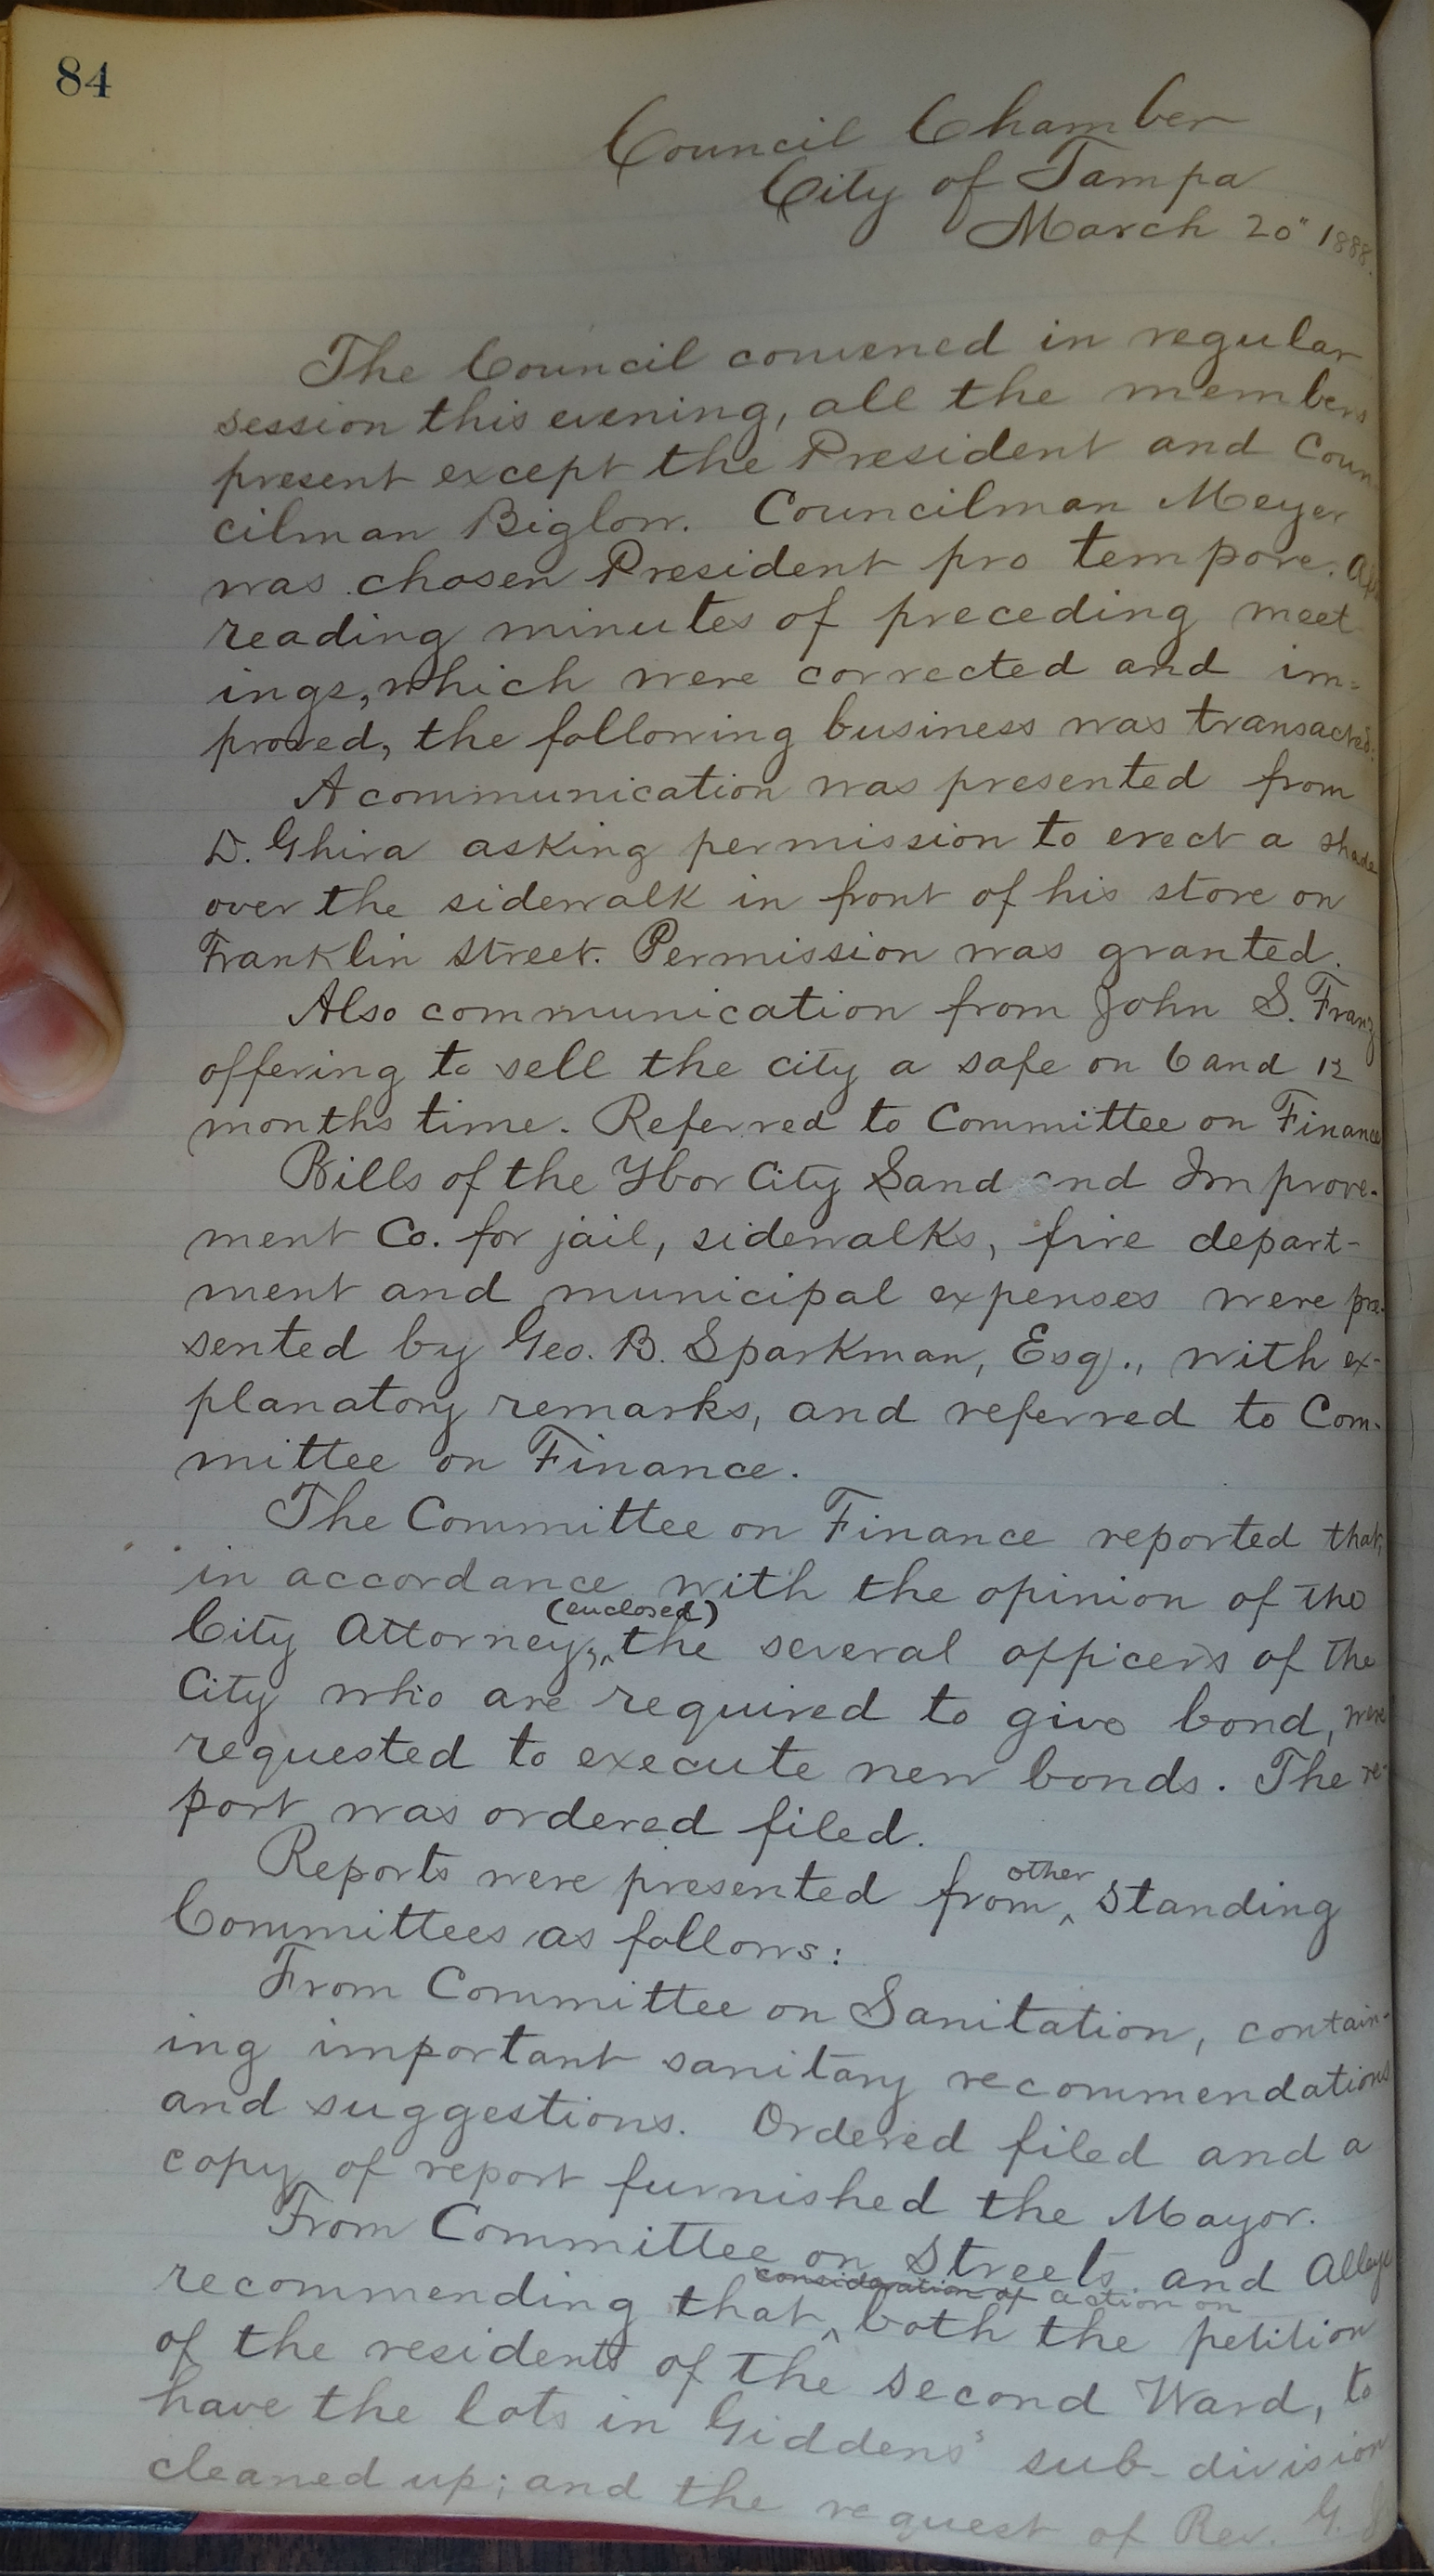 84
Council Chamber
City of Tampa
March 20" 1888.
The Council convened in regular
session this evening, all the members
present except the President and Coun
cilman Biglow. Councilman Meyer
was chosen President pro tempore.
reading minutes of preceding meet
ings, which were corrected and im-
proved, the following business was transacted:
A communication was presented from
D. Ghira asking permission to erect a shade
over the sidewalk in front of his store on
Franklin Street. Permission was granted.
Also communication from John S. Franz
offering to sell the city a safe on 6 and 12
months time. Referred to Committee on Finance
Bills of the Ybor City Sand and Improve-
ment Co. for jail, sidewalks, fire depart-
ment and municipal expenses were pre-
sented by Geo. B. Sparkman, Esq., with ex-
planatory remarks, and referred to Com-
mittee on Finance.
The Committee on Finance reported that,
in accordance with the opinion of the
(enclosed)
City Attorney, ^ the several officers of the
City who are required to give bond, were
requested to execute new bonds. The re-
port was ordered filed.
other
Reports were presented from ^ standing
Committees as follows:
From Committee on Sanitation, contain-
ing important sanitary recommendations
and suggestions. Ordered filed and a
copy of report furnished the Mayor.
From Committee on Streets and Alleys
consideration of action on
recommending that ^ both the petition
of the residents of the second Ward, to
have the lots in Giddens' sub-division
cleaned up; and the request of Rev. G.